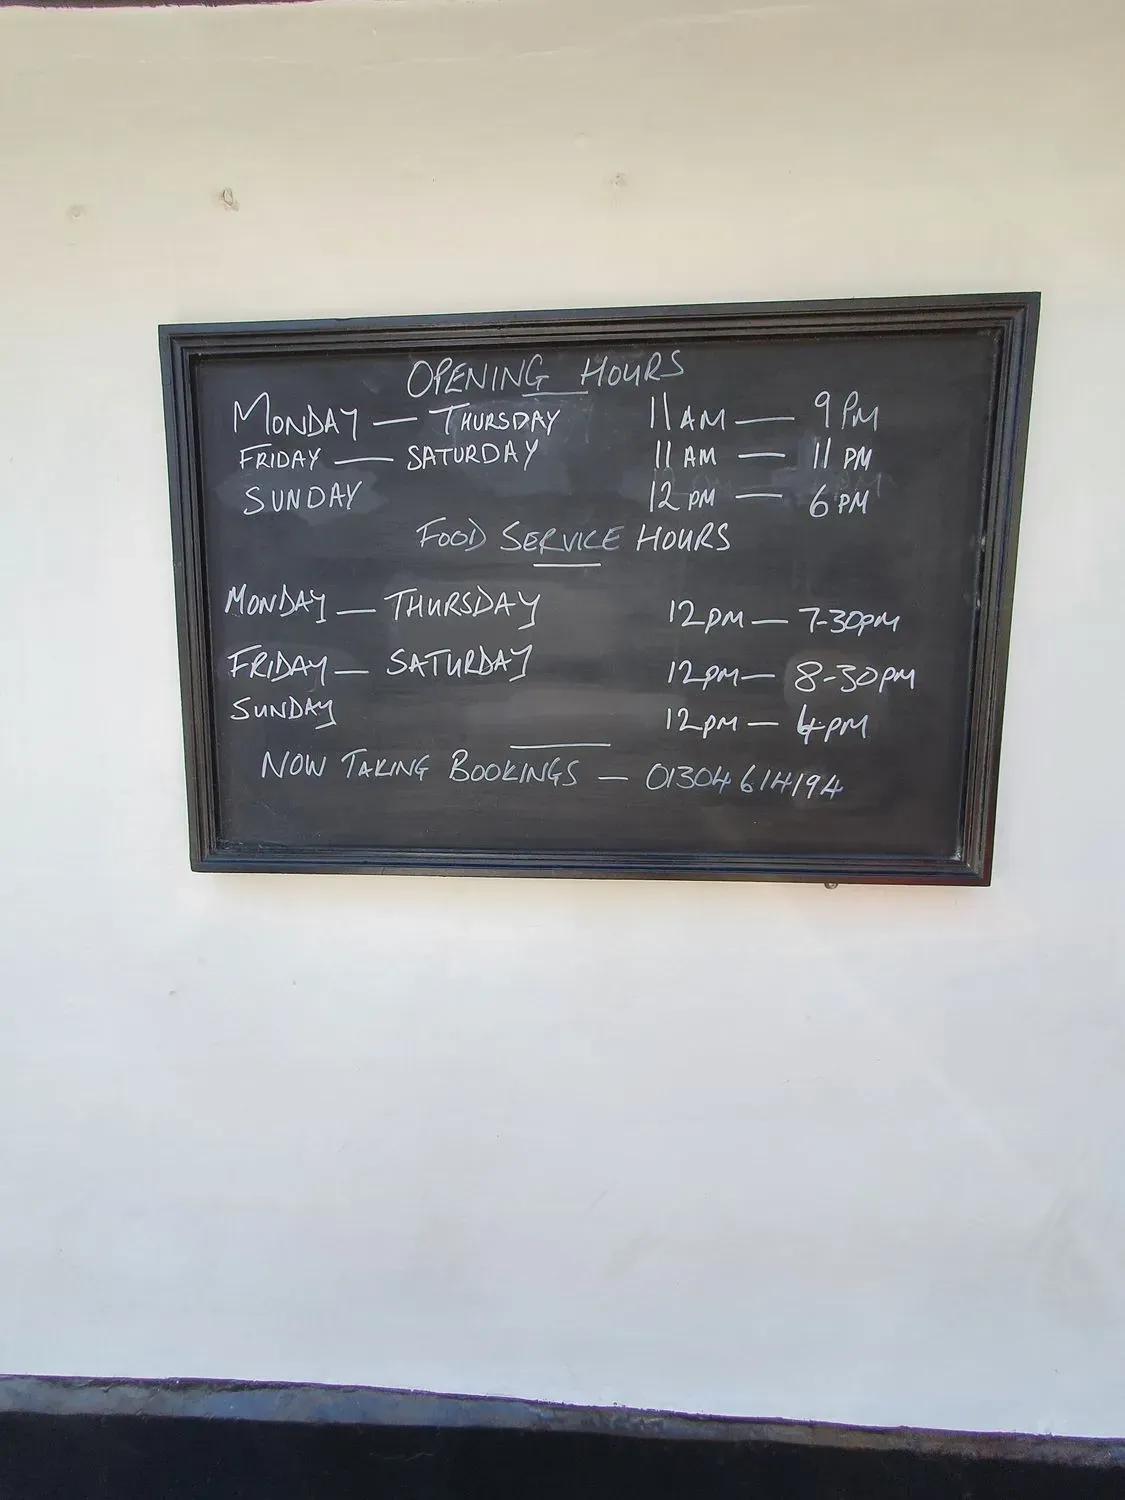 OPENING HOURS
MONDAY — THURSDAY 11AM — 9PM
FRIDAY — SATURDAY 11AM — 11PM
SUNDAY 12PM — 6PM
FOOD SERVICE HOURS
MONDAY — THURSDAY 12PM — 7-30PM
FRIDAY — SATURDAY 12PM — 8-30PM
SUNDAY 12PM — 4PM
NOW TAKING BOOKINGS — 01304 614194